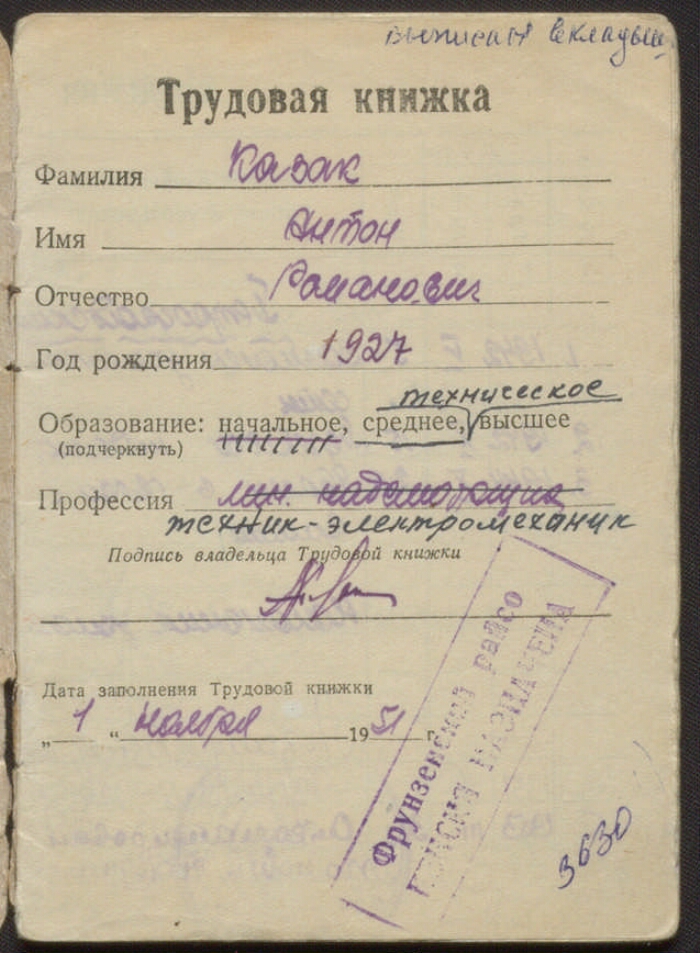 выписан вкладыш
Трудовая книжка
Фамилия Казак
Имя Антон
Отчество Романович
Год рождения 1927
техническое
Образование: начальное, среднее, высшее
(подчеркнуть)
Профессия лин. надсмотрщик
техник-электромеханик
Подпись владельца Трудовой книжки
Дата заполнения Трудовой книжки
„ 1 “ ноября 1951 г.
Фрунзенский райсо
ПЕНСИЯ НАЗНАЧЕНА
3630